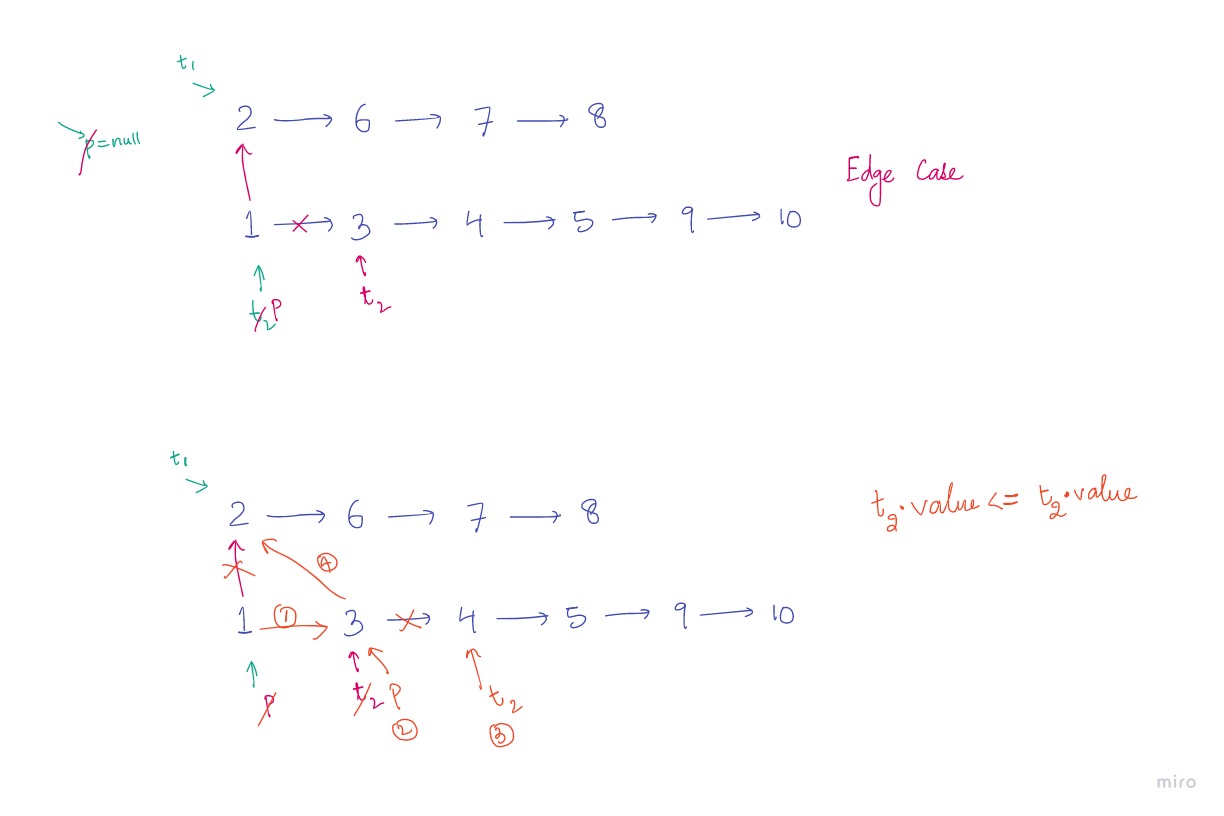 t1
2 → 6 → 7 → 8
p=null
Edge Case
1 → 3 → 4 → 5 → 9 → 10
t2 P
t2
t1
2 → 6 → 7 → 8
t2.value <= t2.value
4
1 → 3 → 4 → 5 → 9 → 10
1
P
t2 P
t2
2
3
miro